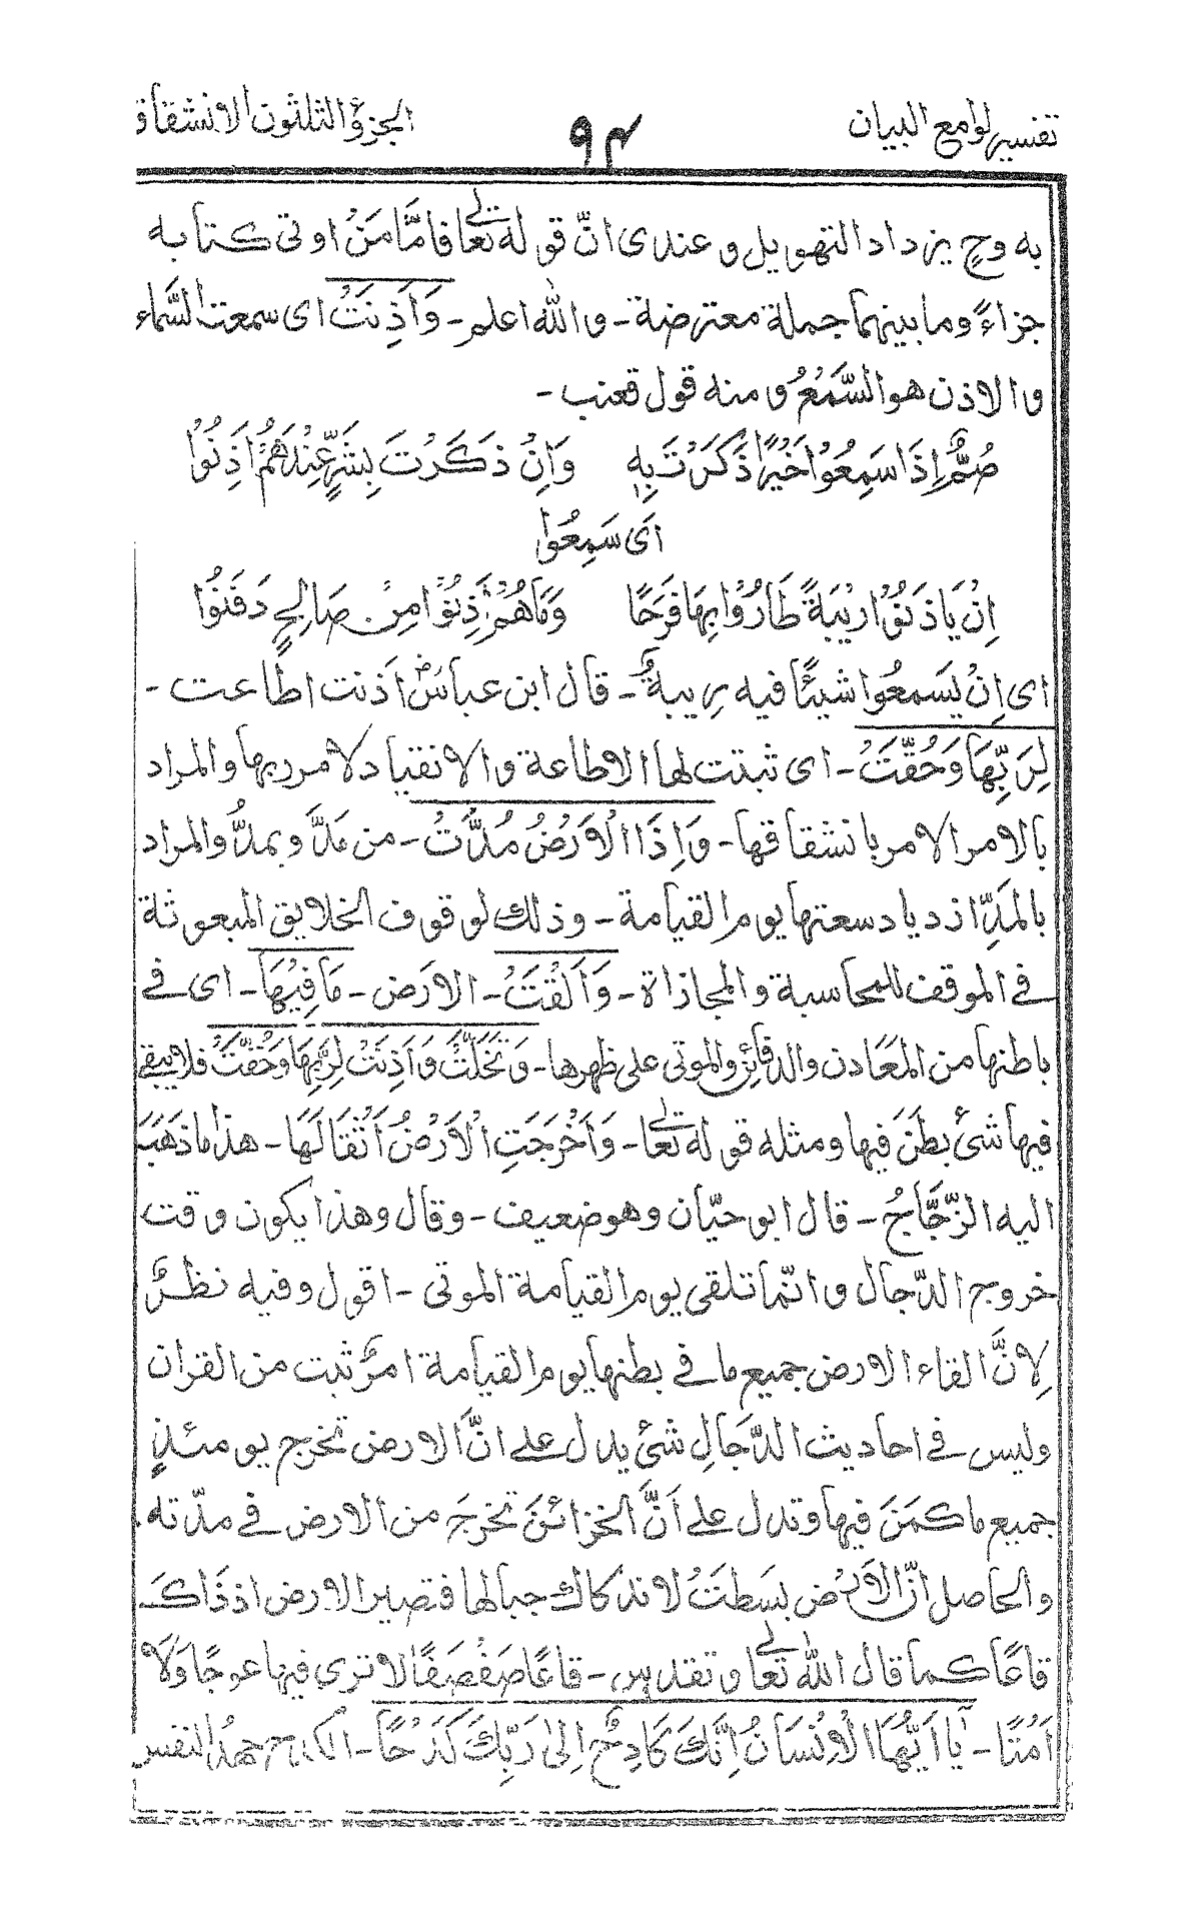 تفسير لوامع البيان ٩٤ الجزؤ الثلثون الانشقاق
به وح يزداد التهويل وعندى انّ قوله تعالى فامَّا مَنْ اوتى كتابه
جزاءً وما بينهما جملة معترضة - والله اعلم - وَاَذِنَتْ اى سمعت السَّماء
والاذن هو السَّمْعُ ومنه قول قعنب -
صُمٌّ اِذَا سَمِعُوْا خَيْرًا ذَكَرْتَ بِهٖ وَاِنْ ذَكَرْتَ بِشَرٍّ عِنْدَهُمْ اَذِنُوْا
اَى سَمِعُوا
اِنْ يَاْذَنُوْا رِيْبَةً طَارُوْا بِهَا فَرَحًا وَمَا هُمْ اَذِنُوْا مِنْ صَالِحٍ دَفَنُوْا
اى اِنْ يَسمعُوا شيئًا فيه ريبةٌ - قال ابن عباسؓ اَذنت اطاعت -
لِرَبِّهَا وَحُقَّتْ - اى ثبتت لها الاطاعة والانقياد لامر ربها والمراد
بالامر الامر بانشقاقها - وَاِذَا الْاَرْضُ مُدَّتْ - من مَدَّ و يمدُّ والمراد
بالمَدِّ ازدياد سعتها يوم القيامة - وذلك لوقوف الخلايق المبعوثة
فى الموقف للمحاسبة والمجازاة - وَاَلْقَتْ - الارَض - مَا فِيْهَا - اى فى
باطنها من المعَادن والدفائن والموتى على ظهرها - وَتَخَلَّتْ وَاَذِنَتْ لِرَبِّهَا وَحُقَّتْ فلا يبقى
فيها شئ بطَنَ فيها ومثله قوله تعالى - وَاَخْرَجَتِ الْاَرْضُ اَثْقَالَهَا - هذا ما ذَهَبَ
اليه الزَّجَّاجُ - قال ابو حيّان وهو ضعيف - وقال وهذا يكون وقت
خروج الدّجال وانّما تلقى يوم القيامة الموتى - اقول وفيه نظرٌ
لِانَّ القاء الارض جميع ما فى بطنها يوم القيامة امرٌ ثبت من القران
وليس فى احاديث الدَّجالِ شئ يدل على انَّ الارض تخرج يومئذٍ
جميع ما كمَنَ فيها وتدل على اَنَّ الخزائنَ تخرجَ من الارض فى مدّته
والحاصل انّ الارْض بَسَطَتْ لاندكاك جبالها فتصير الارض اذ ذَاكَ
قاعًا كما قال الله تعالى وتقدس - قاعًا صَفْصَفًا لا ترى فيها عوجًا وَلَا
اَمْتًا - يٰا اَيُّهَا الْاِنْسَانُ اِنَّكَ كَادِحٌ اِلىٰ رَبِّكَ كَدْحًا - الكدح جهدُ النفس